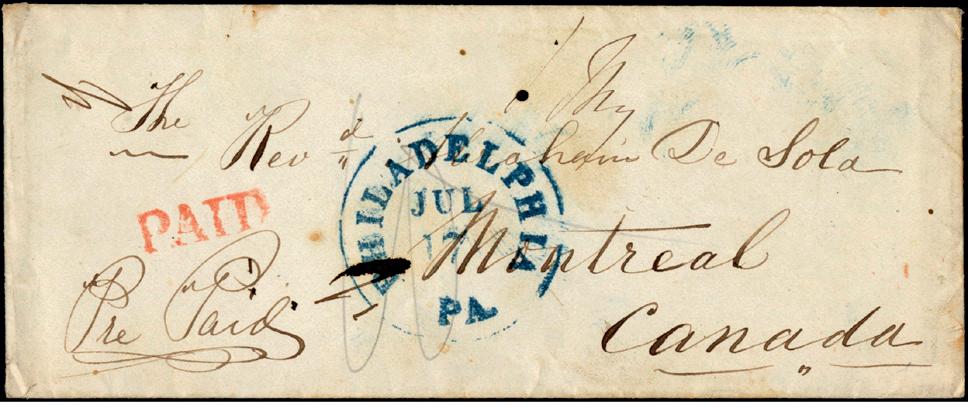 The Rev^d Abraham De Sola
Montreal
Canada
PAID
Pre Paid
PHILADELPHIA
JUL
17
PA